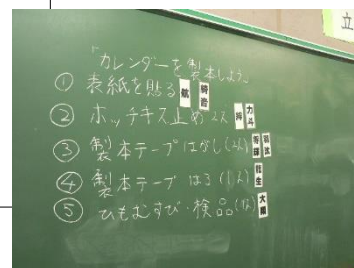 立
「カレンダーを製本しよう」
① 表紙を貼る
② ホッチキス止め 2人 力斗
③ 製本テープはがし(2人)
④ 製本テープはる(1人)
⑤ ひもむすび・検品(1人)